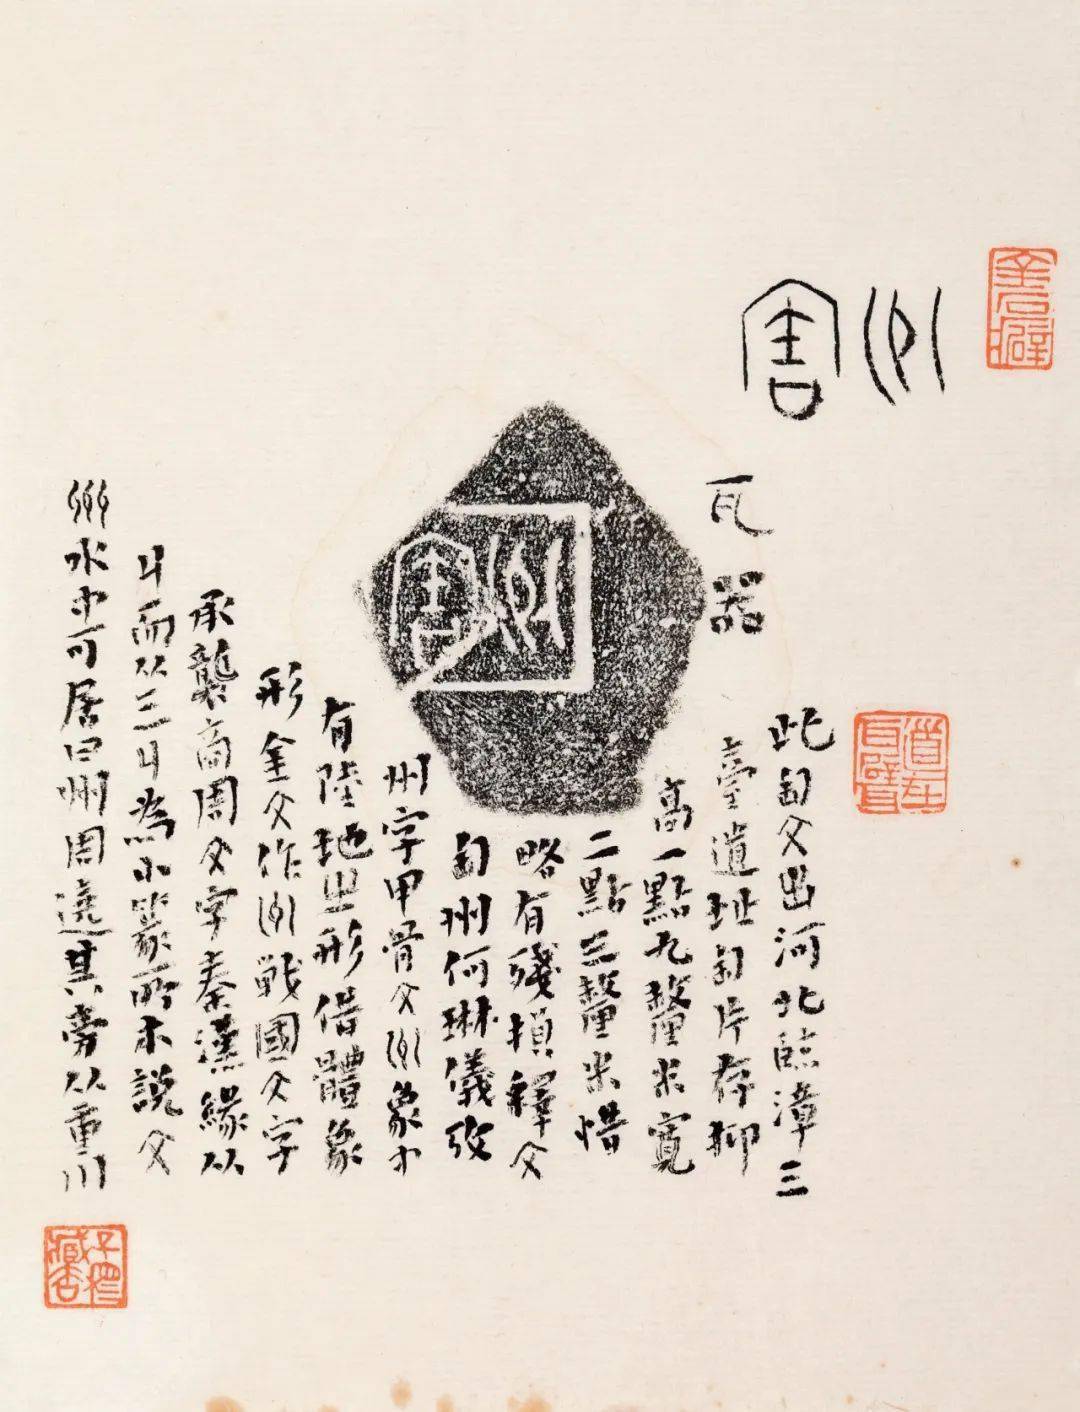 州
瓦器
此匋文出河北臨漳三
臺遺址匋片存抑
高一點九釐米寬
二點三釐米惜
略有殘損釋文
匋州何琳儀攷
州字甲骨文州象中
有陸地之形借體象
形金文作州戰國文字
承襲商周文字秦漢緣从
丩而从三丩為小篆所本說文
州水中可居曰州周遶其旁从重川
金石癖
道在瓦甓